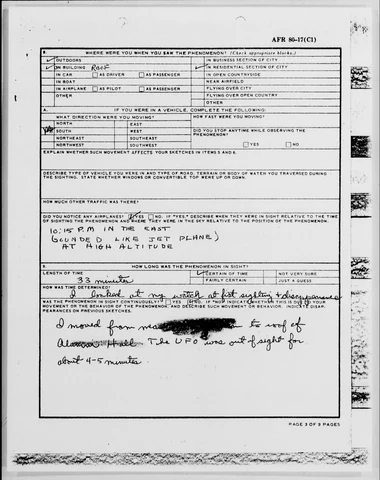 AFR 80-17(C1)
8. WHERE WERE YOU WHEN YOU SAW THE PHENOMENON? (Check appropriate blocks.)
OUTDOORS IN BUSINESS SECTION OF CITY
IN BUILDING Roof IN RESIDENTIAL SECTION OF CITY
IN CAR AS DRIVER AS PASSENGER IN OPEN COUNTRYSIDE
IN BOAT NEAR AIRFIELD
IN AIRPLANE AS PILOT AS PASSENGER FLYING OVER CITY
OTHER FLYING OVER OPEN COUNTRY
OTHER
A. IF YOU WERE IN A VEHICLE, COMPLETE THE FOLLOWING:
WHAT DIRECTION WERE YOU MOVING? HOW FAST WERE YOU MOVING?
NORTH EAST
SOUTH WEST DID YOU STOP ANYTIME WHILE OBSERVING THE PHENOMENON?
NORTHEAST SOUTHEAST
NORTHWEST SOUTHWEST YES NO
EXPLAIN WHETHER SUCH MOVEMENT AFFECTS YOUR SKETCHES IN ITEMS 5 AND 6.
DESCRIBE TYPE OF VEHICLE YOU WERE IN AND TYPE OF ROAD, TERRAIN OR BODY OF WATER YOU TRAVERSED DURING
THE SIGHTING. STATE WHETHER WINDOWS OR CONVERTIBLE TOP WERE UP OR DOWN.
HOW MUCH OTHER TRAFFIC WAS THERE?
DID YOU NOTICE ANY AIRPLANES? YES NO. IF "YES," DESCRIBE WHEN THEY WERE IN SIGHT RELATIVE TO THE TIME
OF SIGHTING THE PHENOMENON AND WHERE THEY WERE IN THE SKY RELATIVE TO THE POSITION OF THE PHENOMENON.
10:15 P.M IN THE EAST
(SOUNDED LIKE JET PLANE)
AT HIGH ALTITUDE
9. HOW LONG WAS THE PHENOMENON IN SIGHT?
LENGTH OF TIME CERTAIN OF TIME NOT VERY SURE
33 minutes FAIRLY CERTAIN JUST A GUESS
HOW WAS TIME DETERMINED?
I looked at my watch at 1st sighting & disappearance
WAS THE PHENOMENON IN SIGHT CONTINUOUSLY? YES NO. IF "NO," INDICATE WHETHER THIS IS DUE TO
YOUR MOVEMENT OR THE BEHAVIOR OF THE PHENOMENON, AND DESCRIBE SUCH MOVEMENT OR BEHAVIOR. INDICATE DISAP-
PEARANCES ON PREVIOUS SKETCHES.
I moved from to roof of
Hall. The UFO was out of sight for
about 4-5 minutes
PAGE 3 OF 9 PAGES